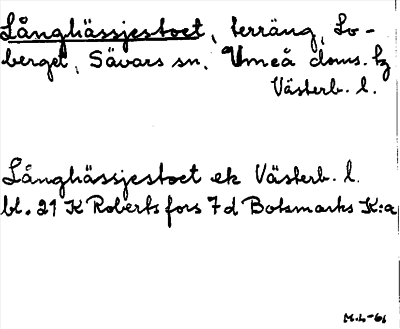 Långhässjestoet, terräng, Lo-
berget, Sävars sn. Umeå doms. hg
Västerb. l.
Långhässjestoet ek Västerb. l.
bl. 21 K Robertsfors 7d Botsmarks K:a
M.L-61